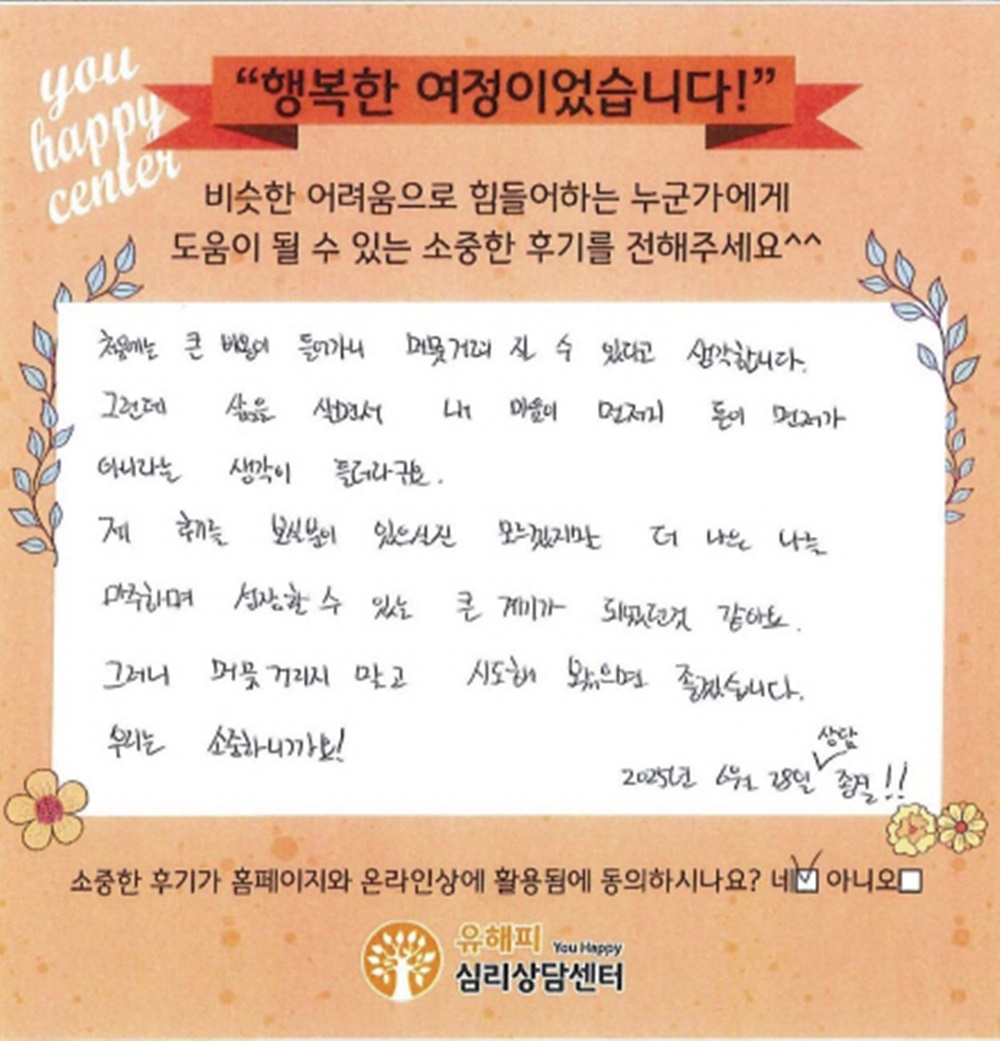 you
happy
center
“행복한 여정이었습니다!”
비슷한 어려움으로 힘들어하는 누군가에게
도움이 될 수 있는 소중한 후기를 전해주세요^^
처음에는 큰 비용이 들어가니 머뭇거려 질 수 있다고 생각합니다.
그런데 삶을 살면서 내 마음이 먼저지 돈이 먼저가
아니라는 생각이 들더라구요.
제 후기를 보실분이 있으실진 모르겠지만 더 나은 나를
마주하며 성장할 수 있는 큰 계기가 되었던것 같아요.
그러니 머뭇거리지 말고 시도해 봤으면 좋겠습니다.
우리는 소중하니까요!
2025년 6월 28일 상담 종결!!
소중한 후기가 홈페이지와 온라인상에 활용됨에 동의하시나요? 네☑ 아니오☐
유해피 You Happy
심리상담센터